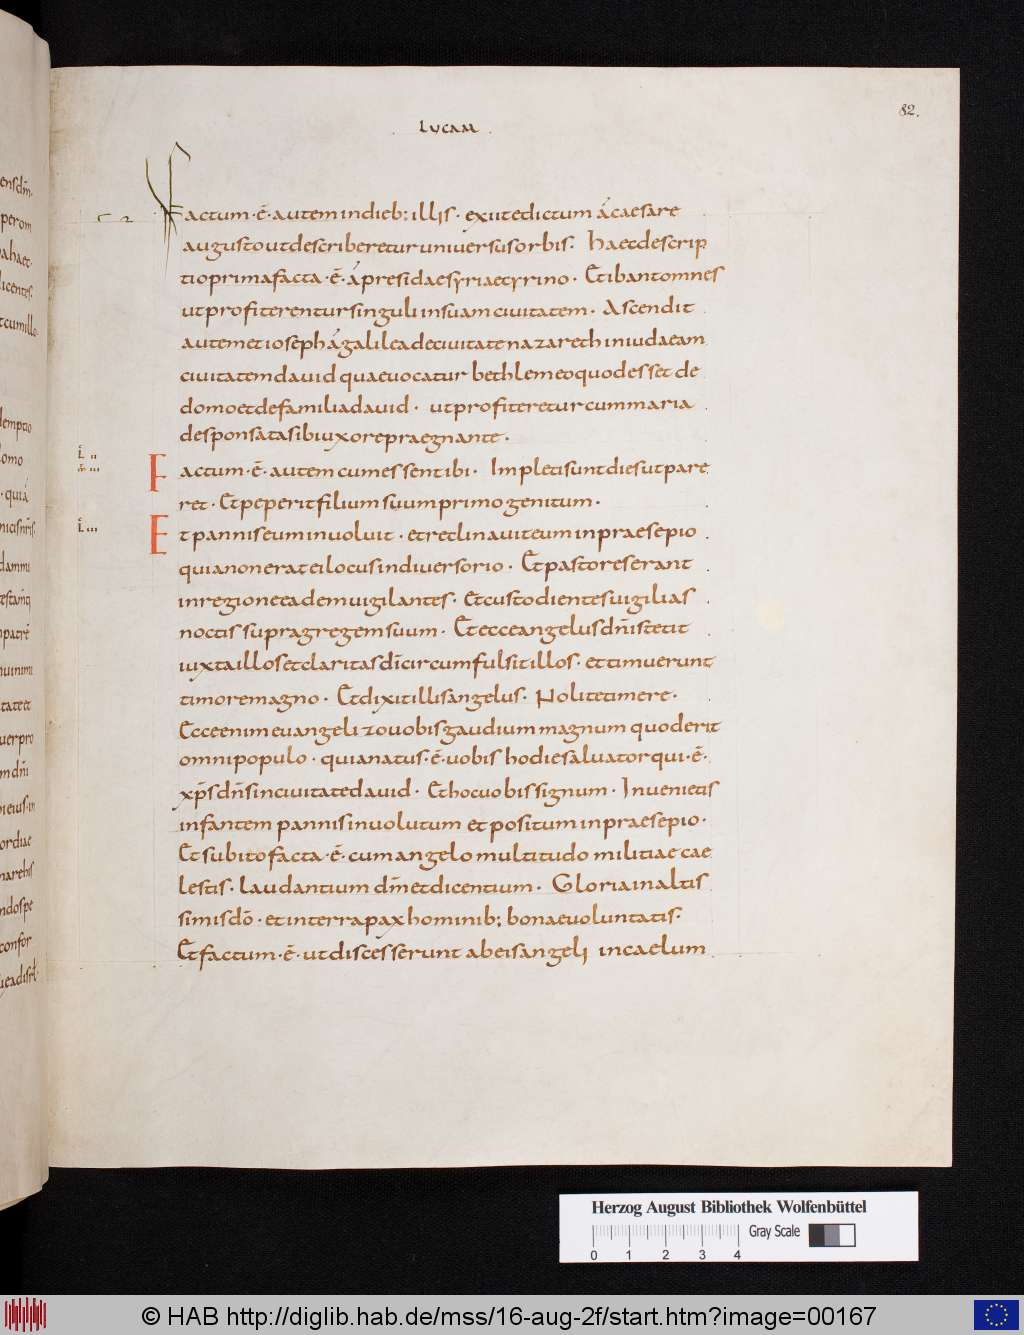 82.
LUCAM
Factum · ē · autem in dieb; illis · exiit edictum á caesare
augusto ut describeretur universus orbis · Haec descrip
tio prima facta · ē · á preside syriae cyrino · Et ibant omnes
ut profiterentur singuli in suam civitatem · Ascendit
autem et ioseph á galilea de civitate nazareth in iudaeam
civitatem david quae vocatur bethlem eo quod esset de
domo et de familia david · ut profiteretur cum maria
desponsata sibi uxore praegnante ·
Factum · ē · autem cum essent ibi · Impleti sunt dies ut pare
ret · Et peperit filium suum primogenitum ·
Et pannis eum involvit · et reclinavit eum in praesepio
quia non erat ei locus in diversorio · Et pastores erant
in regione eadem vigilantes · Et custodientes vigilias
noctis supra gregem suum · Et ecce angelus dñi stetit
iuxta illos et claritas dī circumfulsit illos · et timuerunt
timore magno · Et dixit illis angelus · Nolite timere ·
Ecce enim evangelizo vobis gaudium magnum quod erit
omni populo · quia natus · ē · vobis hodie salvator qui · ē ·
xp̄s dñs in civitate david · Et hoc vobis signum · Invenietis
infantem pannis involutum et positum in praesepio ·
Et subito facta · ē · cum angelo multitudo militiae cae
lestis · laudantium dm̄ et dicentium · Gloria in altis
simis dō · et in terra pax hominib; bonae voluntatis ·
Et factum · ē · ut discesserunt ab eis angeli in caelum
Herzog August Bibliothek Wolfenbüttel
Gray Scale
0 1 2 3 4
© HAB http://diglib.hab.de/mss/16-aug-2f/start.htm?image=00167